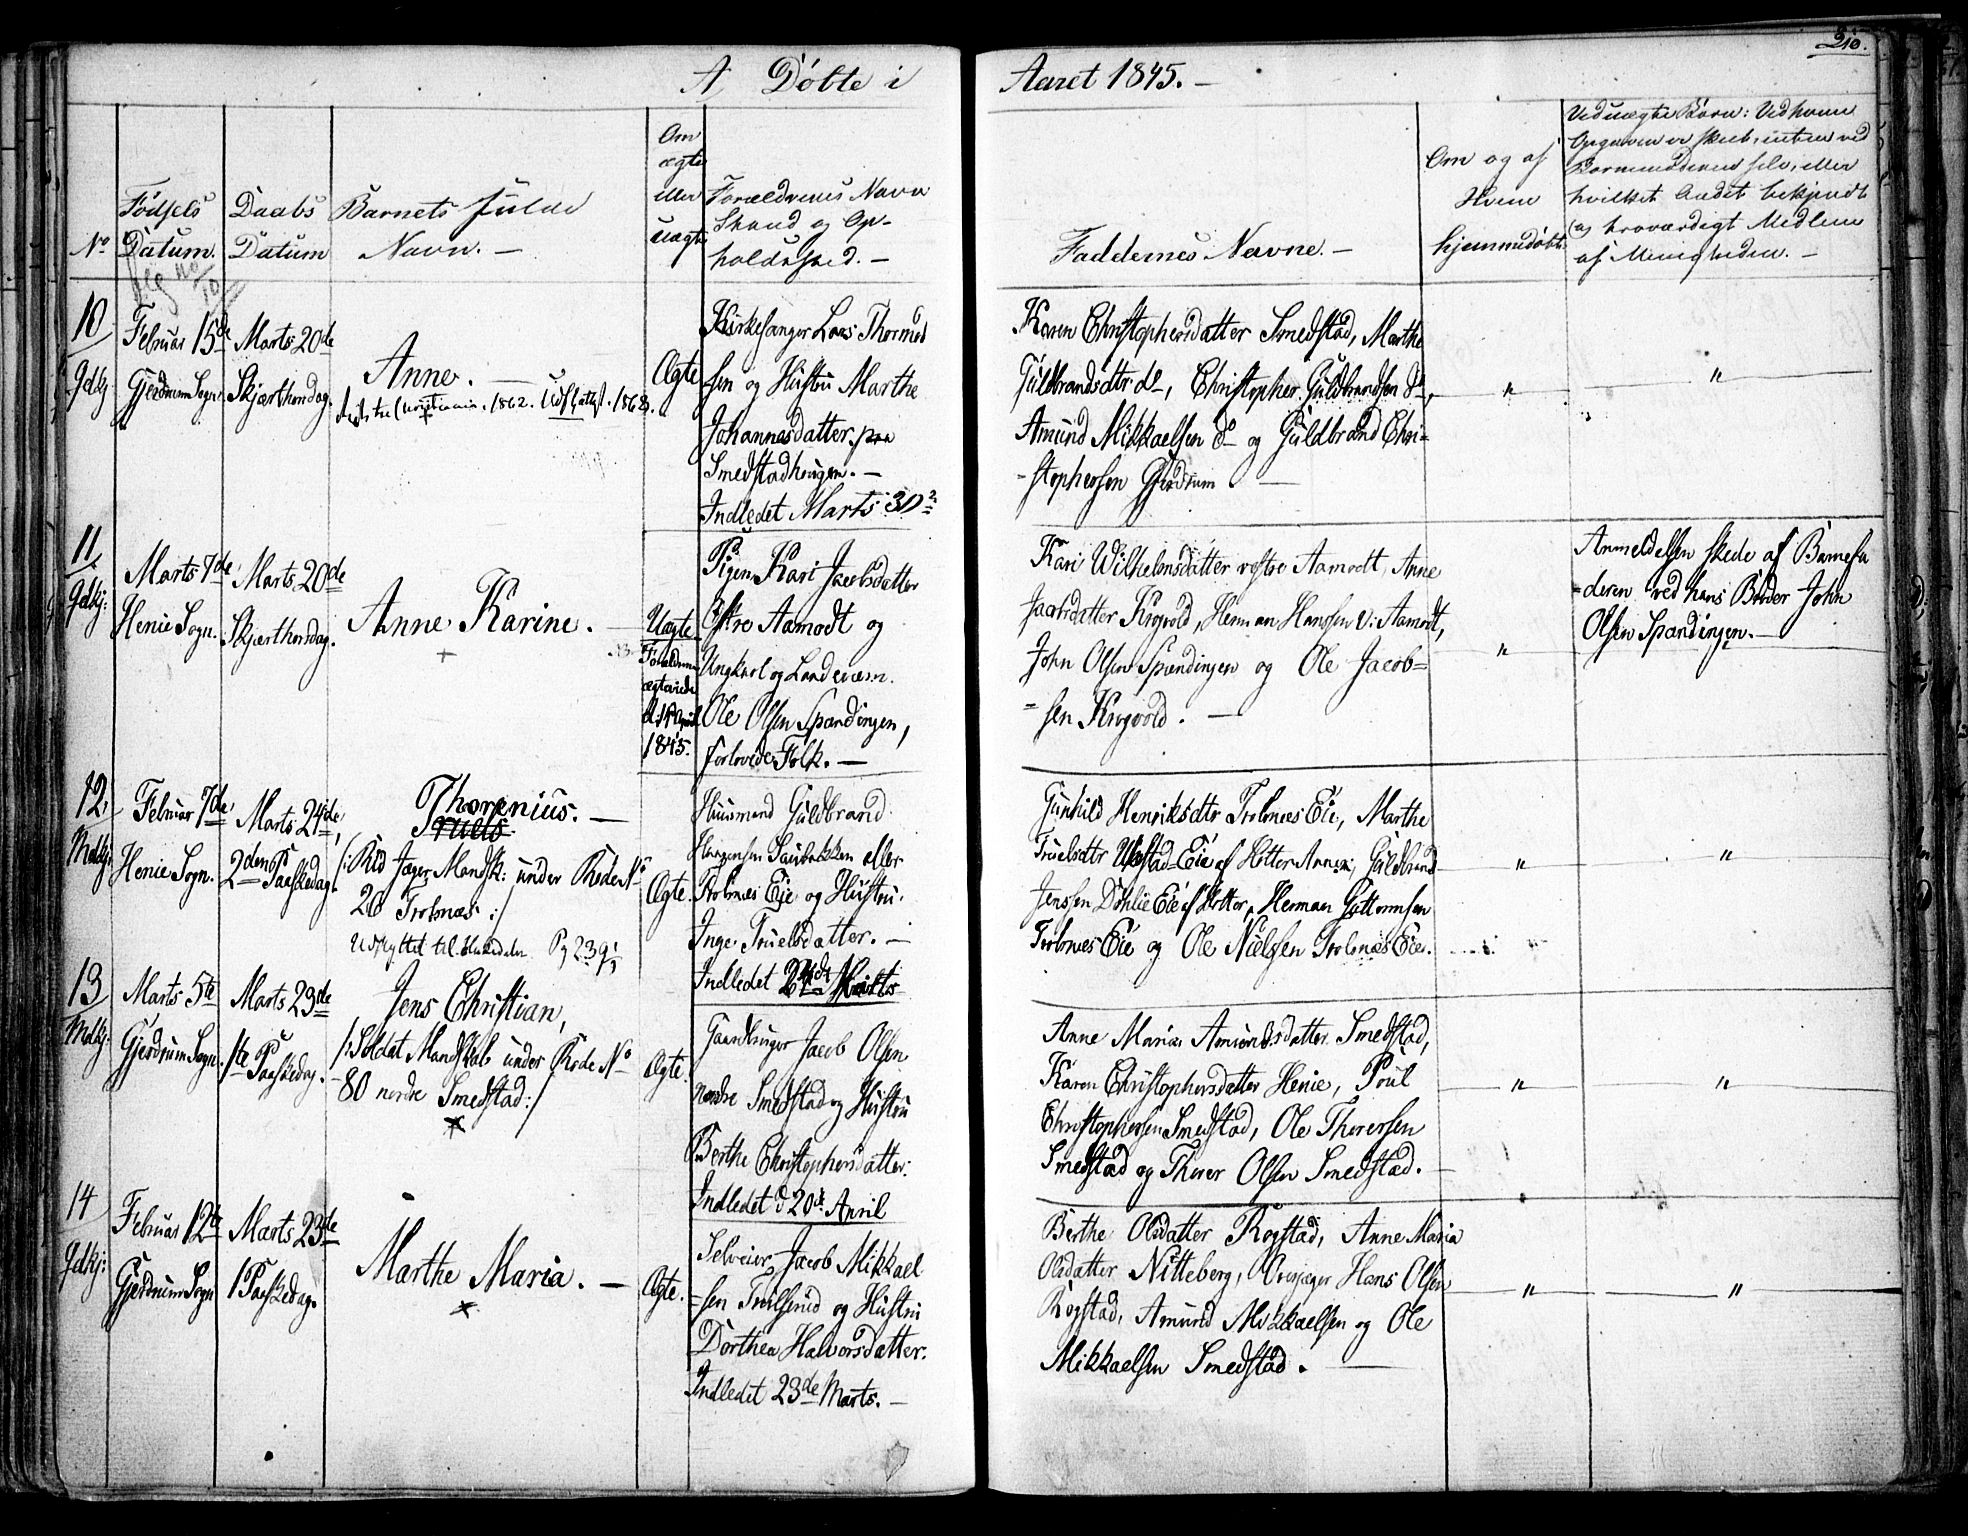 A Døbte i Aaret 1845. —
210.
No
Fødsels
Datum.
Daabs
Datum
Barnets fulde
Navn. —
Om
ægte
eller
uægte
Forældrenes Navn
Stand og Op-
holdssted. —
Faddernes Navne. —
Om og af
Hvem
hjemmedøbt
Ved uægte Børn: Ved hvem
Opgaven er skeet, enten ved
Barnemoderen selv, eller
hvilket andet bekjendt
og troværdigt Medlem
af Menigheden. —
10
Gdkj:
Februar 15de
Gjerdrum Sogn.
Marts 20de
Skjærthorsdag.
Anne. —
1862. 1868.
Ægte
Kirkesanger Lars Thormod
sen og Hustru Marthe
Johannesdatter paa
Smedstadhaugen. —
Indledet Marts 30
Karen Christophersdatter Smedstad, Marthe
Guldbrandsdtr do, Christopher Guldbrandsen do,
Amund Mikkaelsen do og Guldbrand Chri-
-stophersen Gjerdrum. —
"
"
11
Gdkj:
Marts 7de
Henie Sogn.
Marts 20de
Skjærthorsdag.
Anne Karine. —
+
Uægte
Forældrene
ægteviede
April
1845.
Pigen Kari Jacobsdatter
Østre Aamodt og
Ungkarl og Landeværn.
Ole Olsen Spændingen,
forlovede Folk. —
Kari Wilhelmsdatter vestre Aamodt, Anne
Jacobsdatter Krogvold, Herman Hanssen v: Aamodt,
John Olsen Spændingen og Ole Jacob=
=sen Krogvold. —
"
Anmeldelsen skede af Barnefa
=deren ved hans Broder John
Olsen Spændingen. —
12
Mdkj:
Februar 7de
Henie Sogn.
Marts 24de,
2den Paaskedag.
Thorenius. —
Truels
/: Rid Jæger Mandsk: under Rode No
20 Trolsnæs :/
Udflyttet til Pg 239,
Ægte.
Huusmand Guldbrand
Saubakken eller
Trolsnæs Eje og Hustru
Inge Truelsdatter. —
Indledet 24de Marts
Gunhild Henriksdtr Trolsnæs Eie, Marthe
Truelsdtr Ulvstad Eie af Hotter Annex, Guldbrand
Jenssen Døhlie Eie af Hotter, Herman Guttormsen
Trolsnæs Eie og Ole Nielssen Trolsnæs Eie.
"
"
13
Mdkj:
Marts 5te
Gjerdrum Sogn.
Marts 23de
1ste Paaskedag.
Jens Christian,
/: Soldat Mandskab under Rode No
80 nordre Smedstad :/
Ægte.
Gaardbruger Jacob Olsen
nordre Smedstad og Hustru
Berthe Christophersdatter.
Indledet d 20de April
Anne Maria Amundsdatter Smedstad,
Karen Christophersdatter Henie, Poul
Christophersen Smedstad, Ole Thorersen
Smedstad og Thorer Olsen Smedstad. —
"
"
14
Gdkj:
Februar 12te
Gjerdrum Sogn
Marts 23de
1 Paaskedag.
Marthe Maria. —
Ægte.
Selveier Jacob Mikkael
=sen Trulserud og Hustru
Dorthea Halvorsdatter.
Indledet 23de Marts. —
Berthe Olsdatter Rogstad, Anne Maria
Olsdatter Nitteberg, Overjæger Hans Olsen
Rogstad, Amund Mikkaelsen og Ole
Mikkaelsen Smedstad. —
"
"